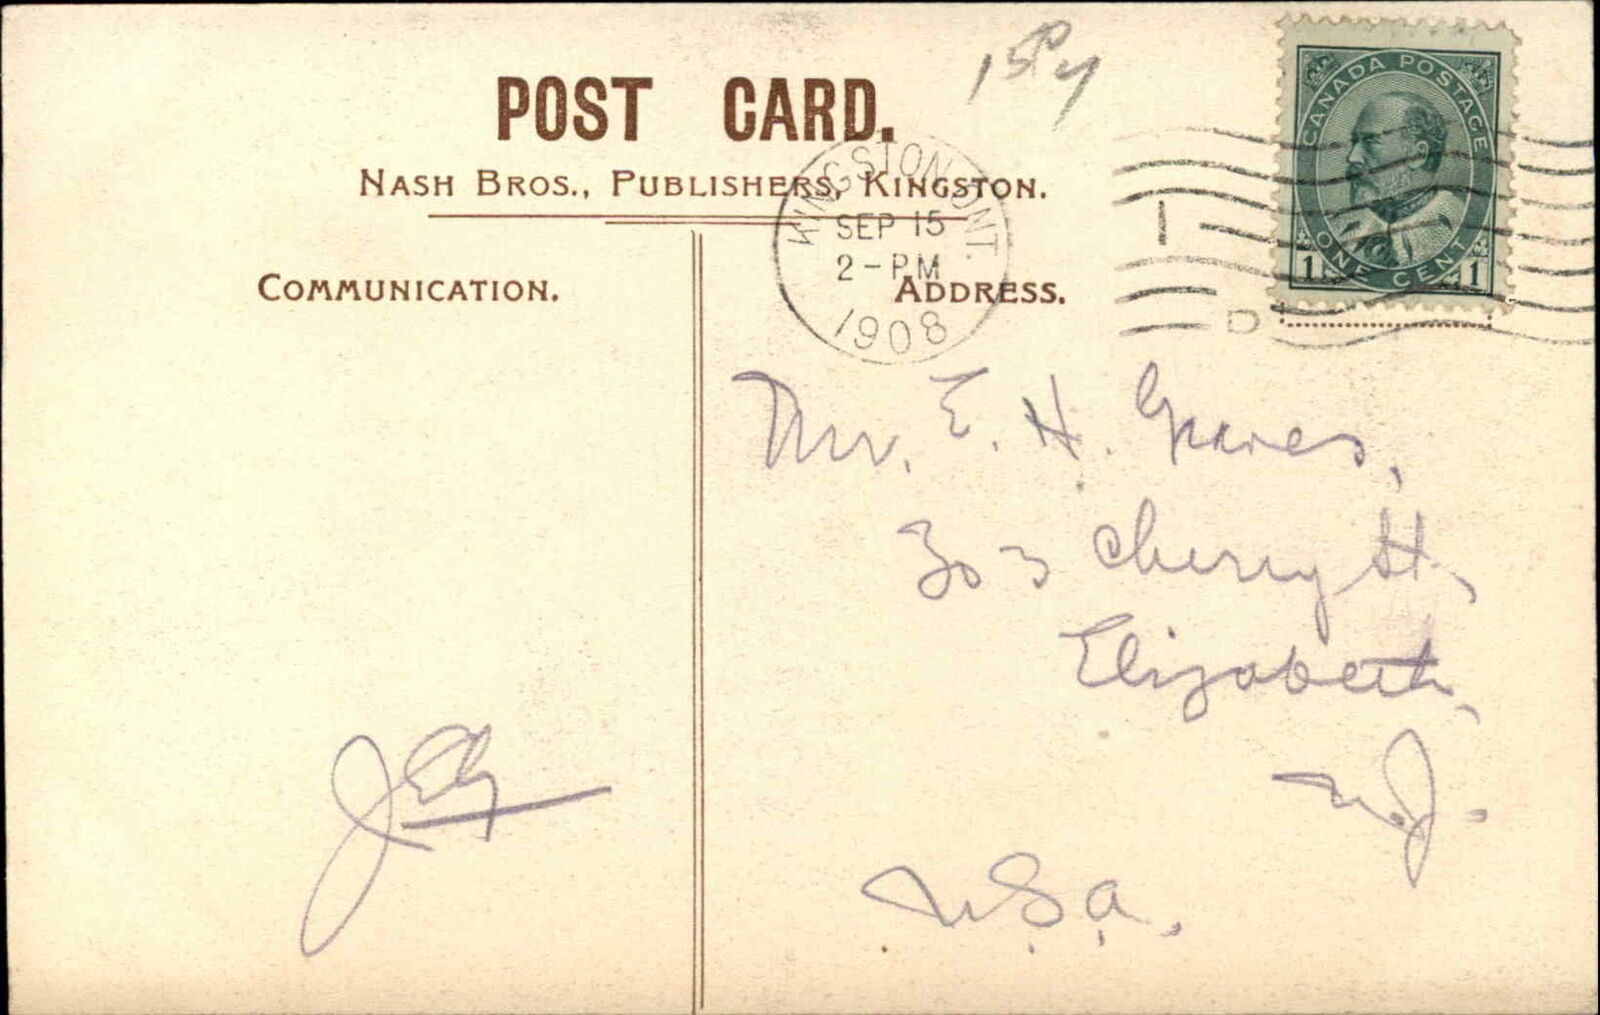 POST CARD.
NASH BROS., PUBLISHERS, KINGSTON.
KINGSTON, ONT.
SEP 15
2-PM
1908
1
D
CANADA POSTAGE
ONE CENT
1 1
COMMUNICATION.
ADDRESS.
Mr. E. H. Graves,
303 Cherry St,
Elizabeth,
N.J.
U.S.A.